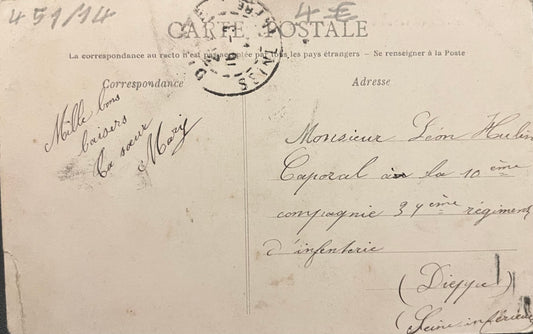 451/14
4€
CARTE POSTALE
La correspondance au recto n'est pas acceptée par tous les pays étrangers - Se renseigner à la Poste
Correspondance
Adresse
Mille bons
baisers
Ta sœur
Mary
Monsieur Léon Hulin
Caporal à la 10ème
compagnie 39ème régiment
d'infenterie
(Dieppe)
(Seine inférieure